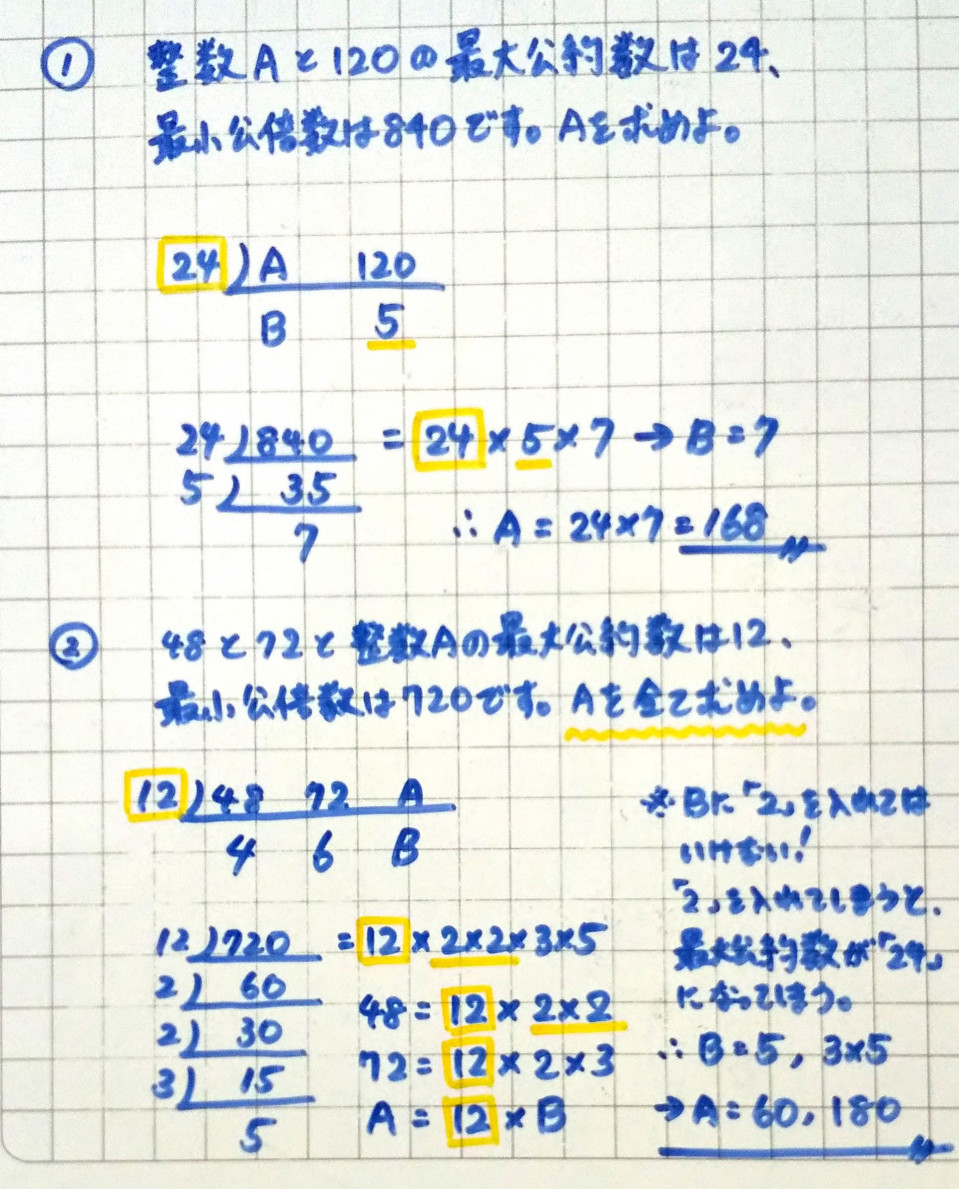 ① 整数Aと120の最大公約数は24、
最小公倍数は840です。Aを求めよ。
24)A 120
B 5
24)840 = 24×5×7→B=7
5) 35
7
∴A=24×7=168
② 48と72と整数Aの最大公約数は12、
最小公倍数は720です。Aを全て求めよ。
12)48 72 A
4 6 B
12)720 = 12×2×2×3×5
2) 60
2) 30
3) 15
5
48=12×2×2
72=12×2×3
A=12×B
※Bに「2」を入れては
いけない!
「2」を入れてしまうと、
最大公約数が「24」
になってしまう。
∴B=5, 3×5
→A=60, 180